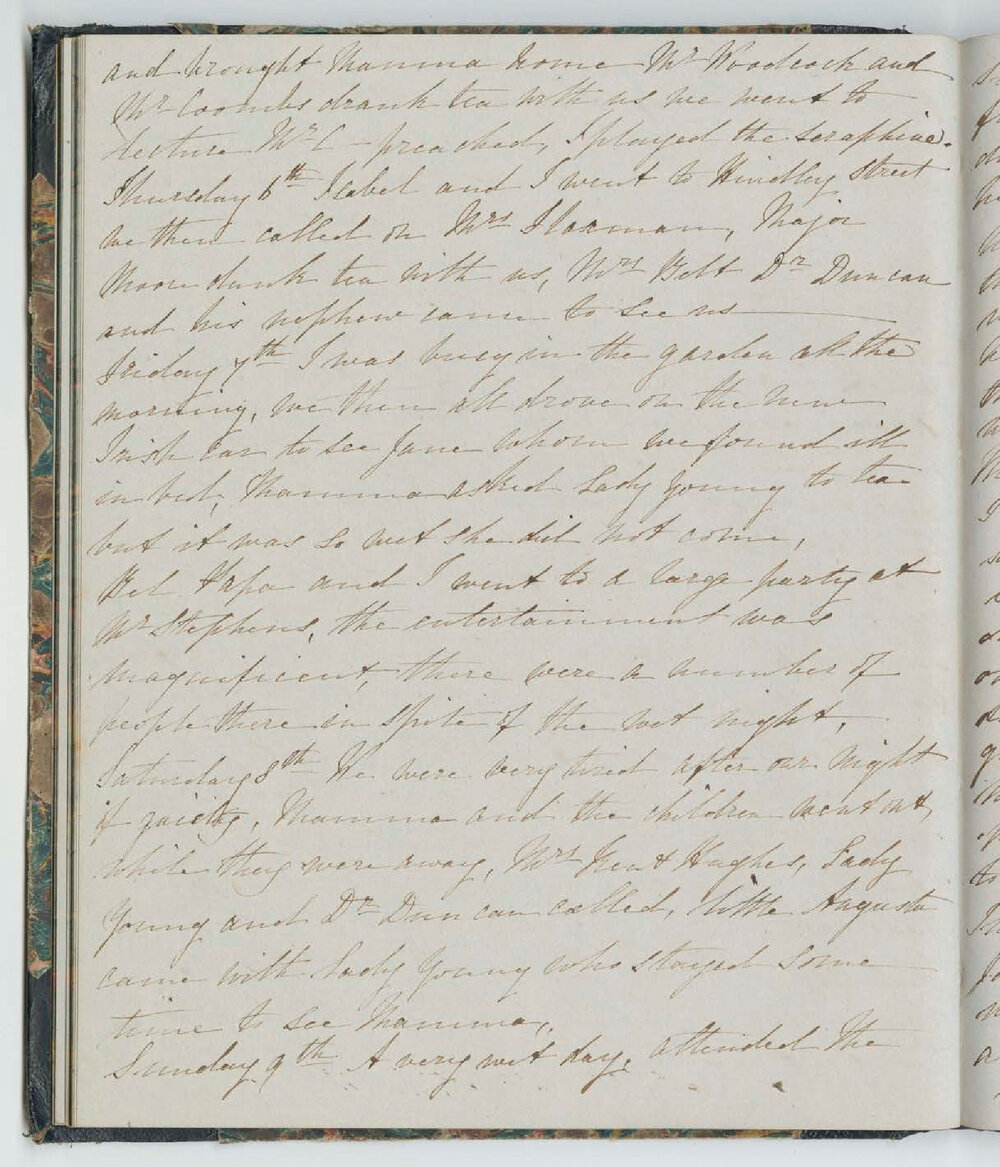 and brought Mamma home Mr Woodcock and
Mr Coombs drank tea with us we went to
lecture Mr C - preached, I played the seraphine.
Thursday 6th Isabel and I went to Hindley Street
we then called on Mrs Flaxman, Major
Moore drank tea with us, Mrs Gell Dr Duncan
and his nephew came to see us
Friday 7th I was busy in the garden all the
morning, we then all drove on the new
Irish car to see Jane whom we found ill
in bed, Mamma asked Lady Young to tea
but it was so wet she did not come,
Bel Papa and I went to a large party at
Mr Stephens, the entertainment was
magnificent, there were a number of
people there in spite of the wet night,
Saturday 8th We were very tired after our night
of gaiety, Mamma and the children went out,
while they were away, Mrs Kent Hughes, Lady
Young and Dr Duncan called, little Augusta
came with Lady Young who stayed some
time to see Mamma,
Sunday 9th A very wet day, attended the